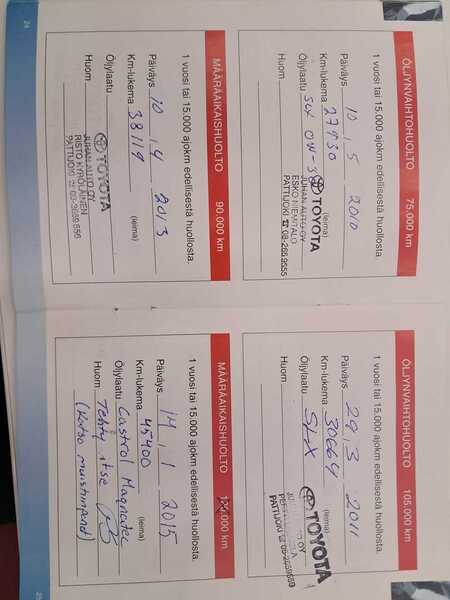 ÖLJYNVAIHTOHUOLTO 75.000 km
1 vuosi tai 15.000 ajokm edellisestä huollosta.
Päiväys 10 . 5 . 2010
Km-lukema 27930 (leima)
Öljylaatu SLX 0W-30
Huom
TOYOTA
JUHAN AUTO OY
ESKO NIEMITALO
PATTIJOKI ☎ 08-2659555
MÄÄRÄAIKAISHUOLTO 90.000 km
1 vuosi tai 15.000 ajokm edellisestä huollosta.
Päiväys 10 . 4 . 2013
Km-lukema 38119 (leima)
Öljylaatu
Huom
TOYOTA
JUHAN AUTO OY
RISTO KYRÖLÄINEN
PATTIJOKI ☎ 08-2659556
24
ÖLJYNVAIHTOHUOLTO 105.000 km
1 vuosi tai 15.000 ajokm edellisestä huollosta.
Päiväys 29 . 3 . 2011
Km-lukema 30664 (leima)
Öljylaatu SLX
Huom
TOYOTA
PATTIJOKI ☎ 08-2659559
MÄÄRÄAIKAISHUOLTO 120.000 km
1 vuosi tai 15.000 ajokm edellisestä huollosta.
Päiväys 14 . 1 . 2015
Km-lukema 45400 (leima)
Öljylaatu Castrol Magnatec
Huom Tehty itse
(Katso muistiinpanot)
25